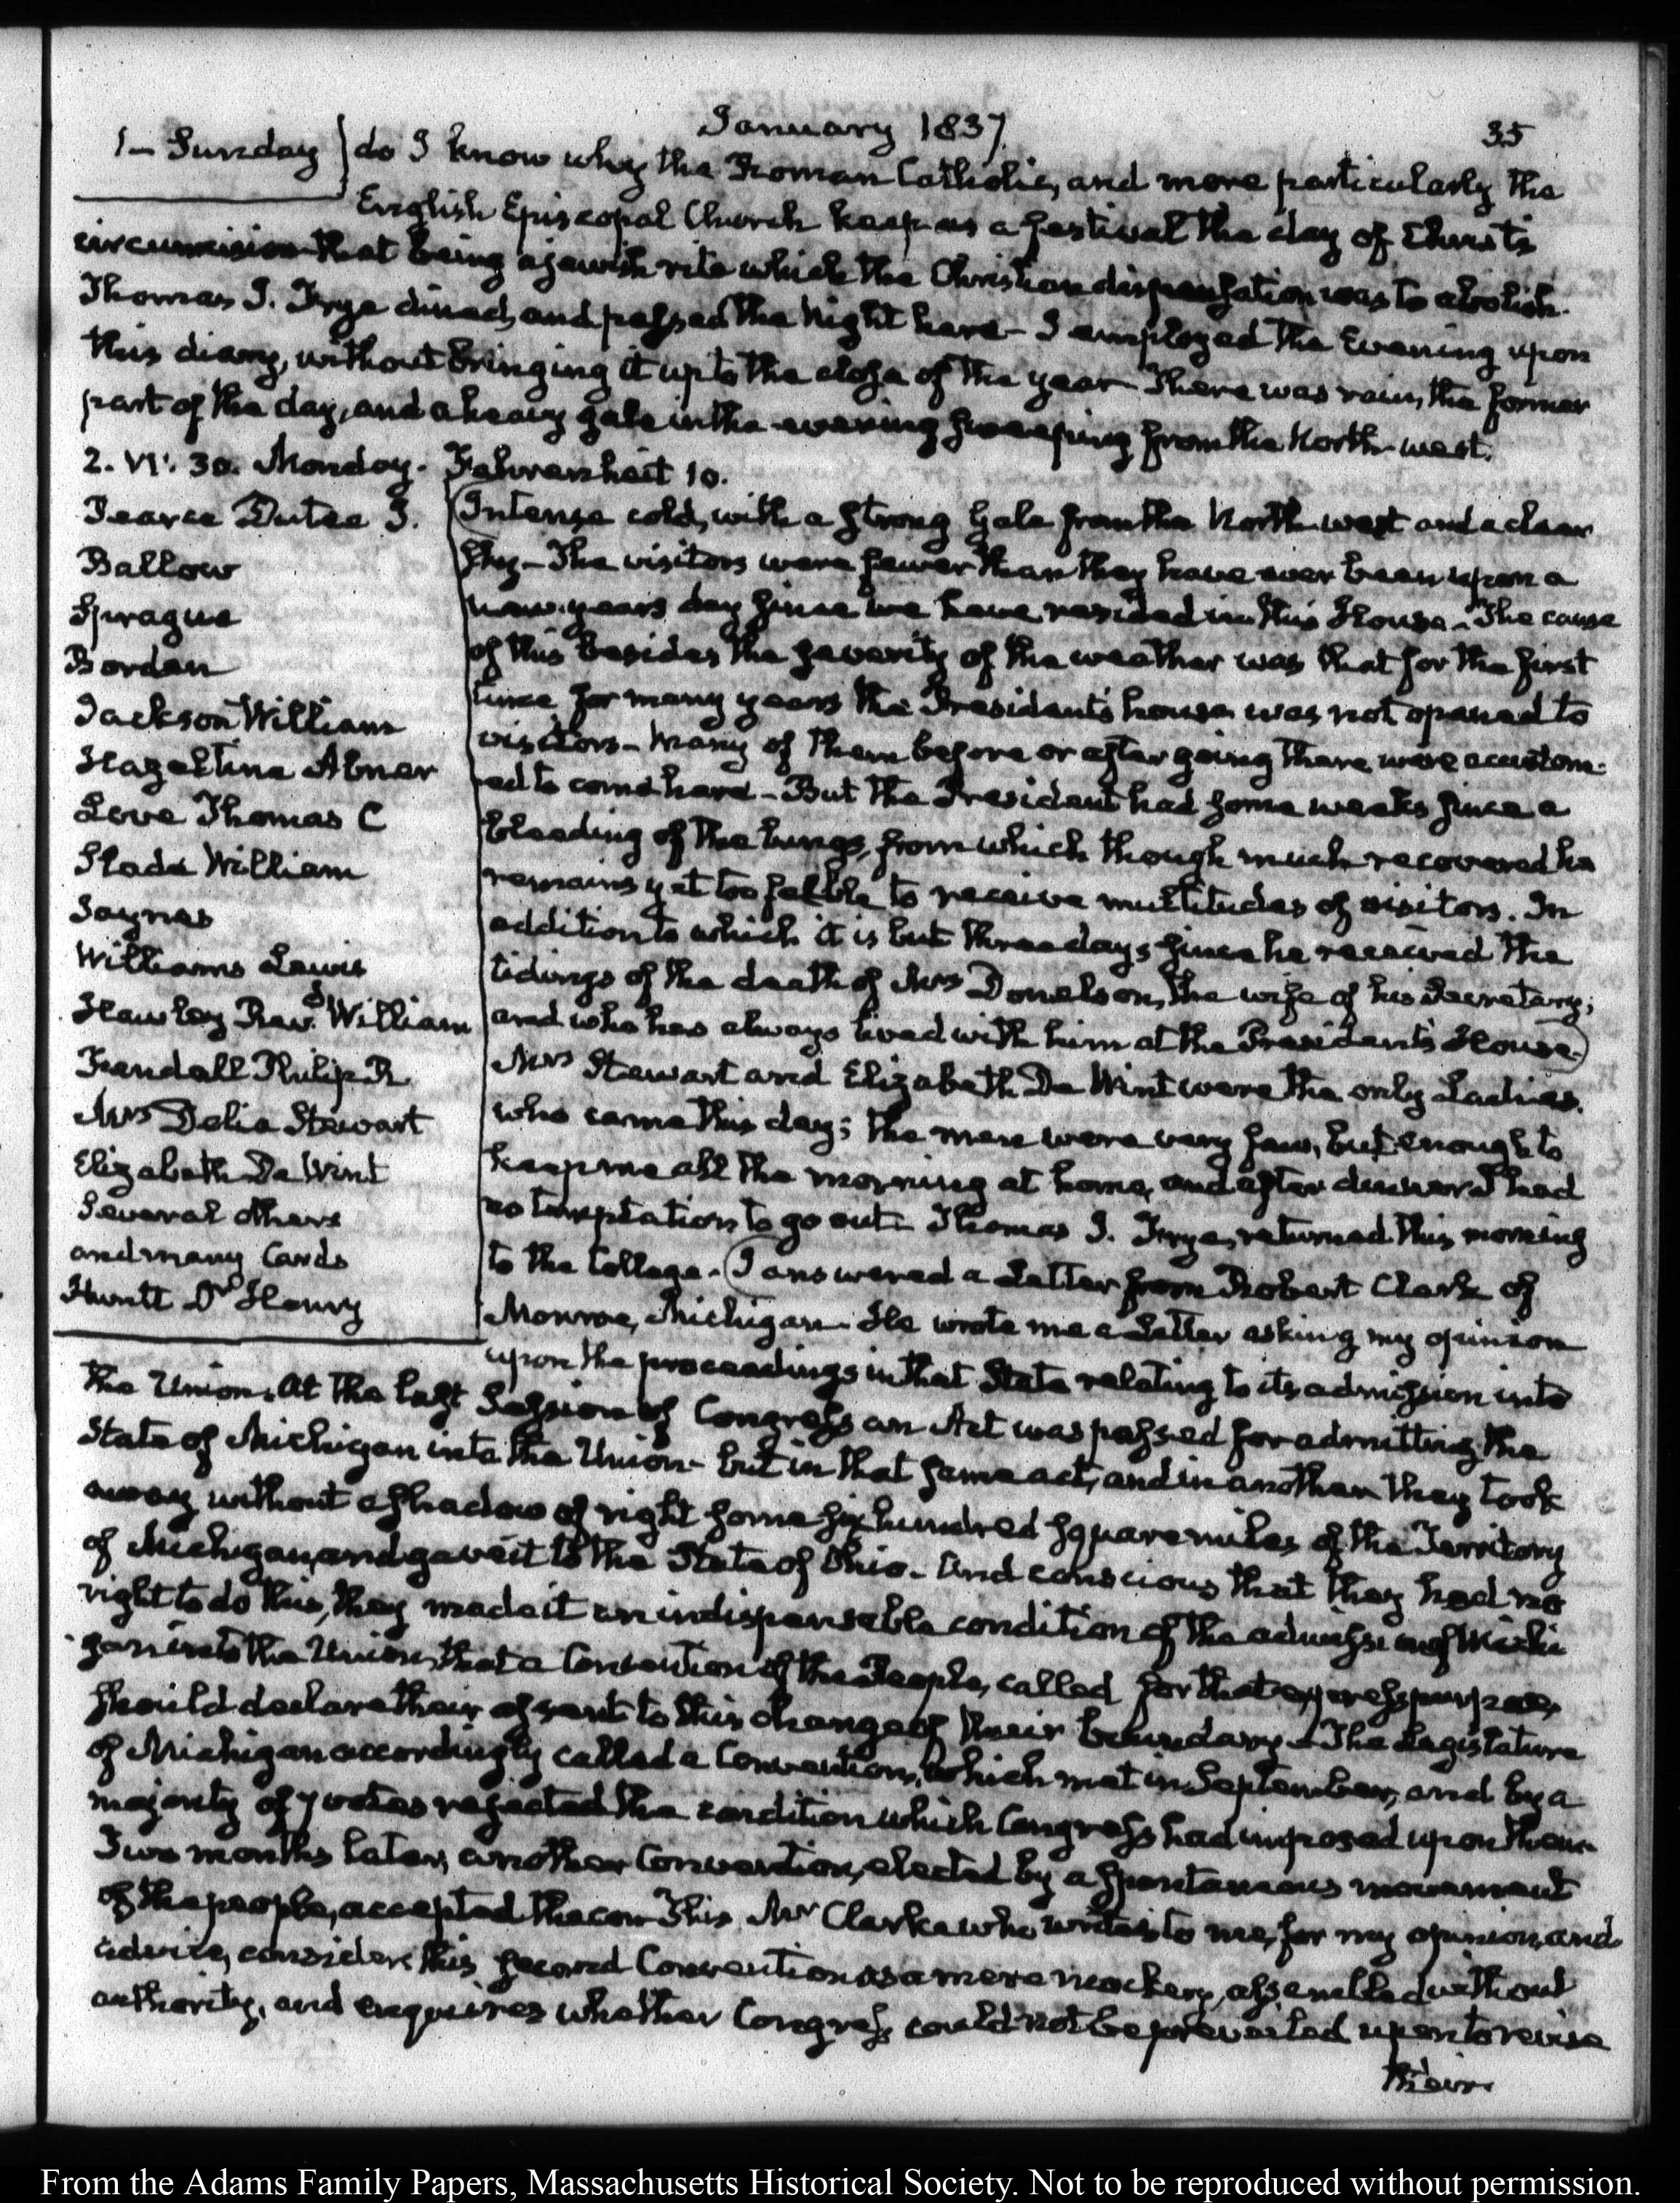 January 1837.
35
1 - Sunday
do I know why the Roman Catholic, and more particularly the
English Episcopal Church keep as a festival the day of Christ's
circumcision that being a jewish rite which the Christian dispensation was to abolish.
Thomas J. Frye dined, and passed the Night here - I employed the Evening upon
this diary, without bringing it up to the close of the year - There was rain, the former
part of the day, and a heavy gale in the evening sweeping from the North-west.
2. VI:30. Monday. Fahrenheit 10.
Pearce Dutee J.
Ballow
Sprague
Borden
Jackson William
Hazeltine Abner
Love Thomas C
Slade William
Jaynes
Williams Lewis
Hawley Revd. William
Fendall Philip R
Mrs Delia Stewart
Elizabeth De Wint
Several others
and many Cards
Huntt Dr Henry
Intense cold, with a strong Gale from the North-west and a clear
sky - The visitors were fewer than they have ever been upon a
new-years day since we have resided in this House - The cause
of this besides the severity of the weather was that for the first
time for many years the President's house was not opened to
visitors - Many of them before or after going there were accustom-
ed to come here - But the President had some weeks since a
bleeding of the lungs, from which though much recovered he
remains yet too feeble to receive multitudes of visitors. In
addition to which it is but three days since he received the
tidings of the death of Mrs Donelson, the wife of his Secretary;
and who has always lived with him at the President's House.
Mrs Stewart and Elizabeth De Wint were the only Ladies
who came this day; the men were very few, but enough to
keep me all the morning at home, and after dinner I had
no temptation to go out - Thomas J. Frye, returned this morning
to the College. I answered a Letter from Robert Clark of
Monroe, Michigan - He wrote me a Letter asking my opinion
upon the proceedings in that State relating to its admission into
the Union. At the last Session of Congress an Act was passed for admitting the
State of Michigan into the Union - but in that same act, and in another they took
away without a shadow of right some six hundred square miles of the Territory
of Michigan, and gave it to the State of Ohio - And conscious that they had no
right to do this, they made it an indispensable condition of the admission of Michi
gan into the Union, that a Convention of the People, called for that express purpose,
should declare their assent to this change of their boundary - The Legislature
of Michigan accordingly called a Convention, which met in September, and by a
majority of 7 votes rejected the condition which Congress had imposed upon them
Two months later, another Convention, elected by a spontaneous movement
of the people, accepted the con This Mr Clarke who writes to me, for my opinion, and
advice, considers this second Convention as a mere mockery, assembled without
authority, and enquires whether Congress could not be prevailed upon to revise
their
From the Adams Family Papers, Massachusetts Historical Society. Not to be reproduced without permission.